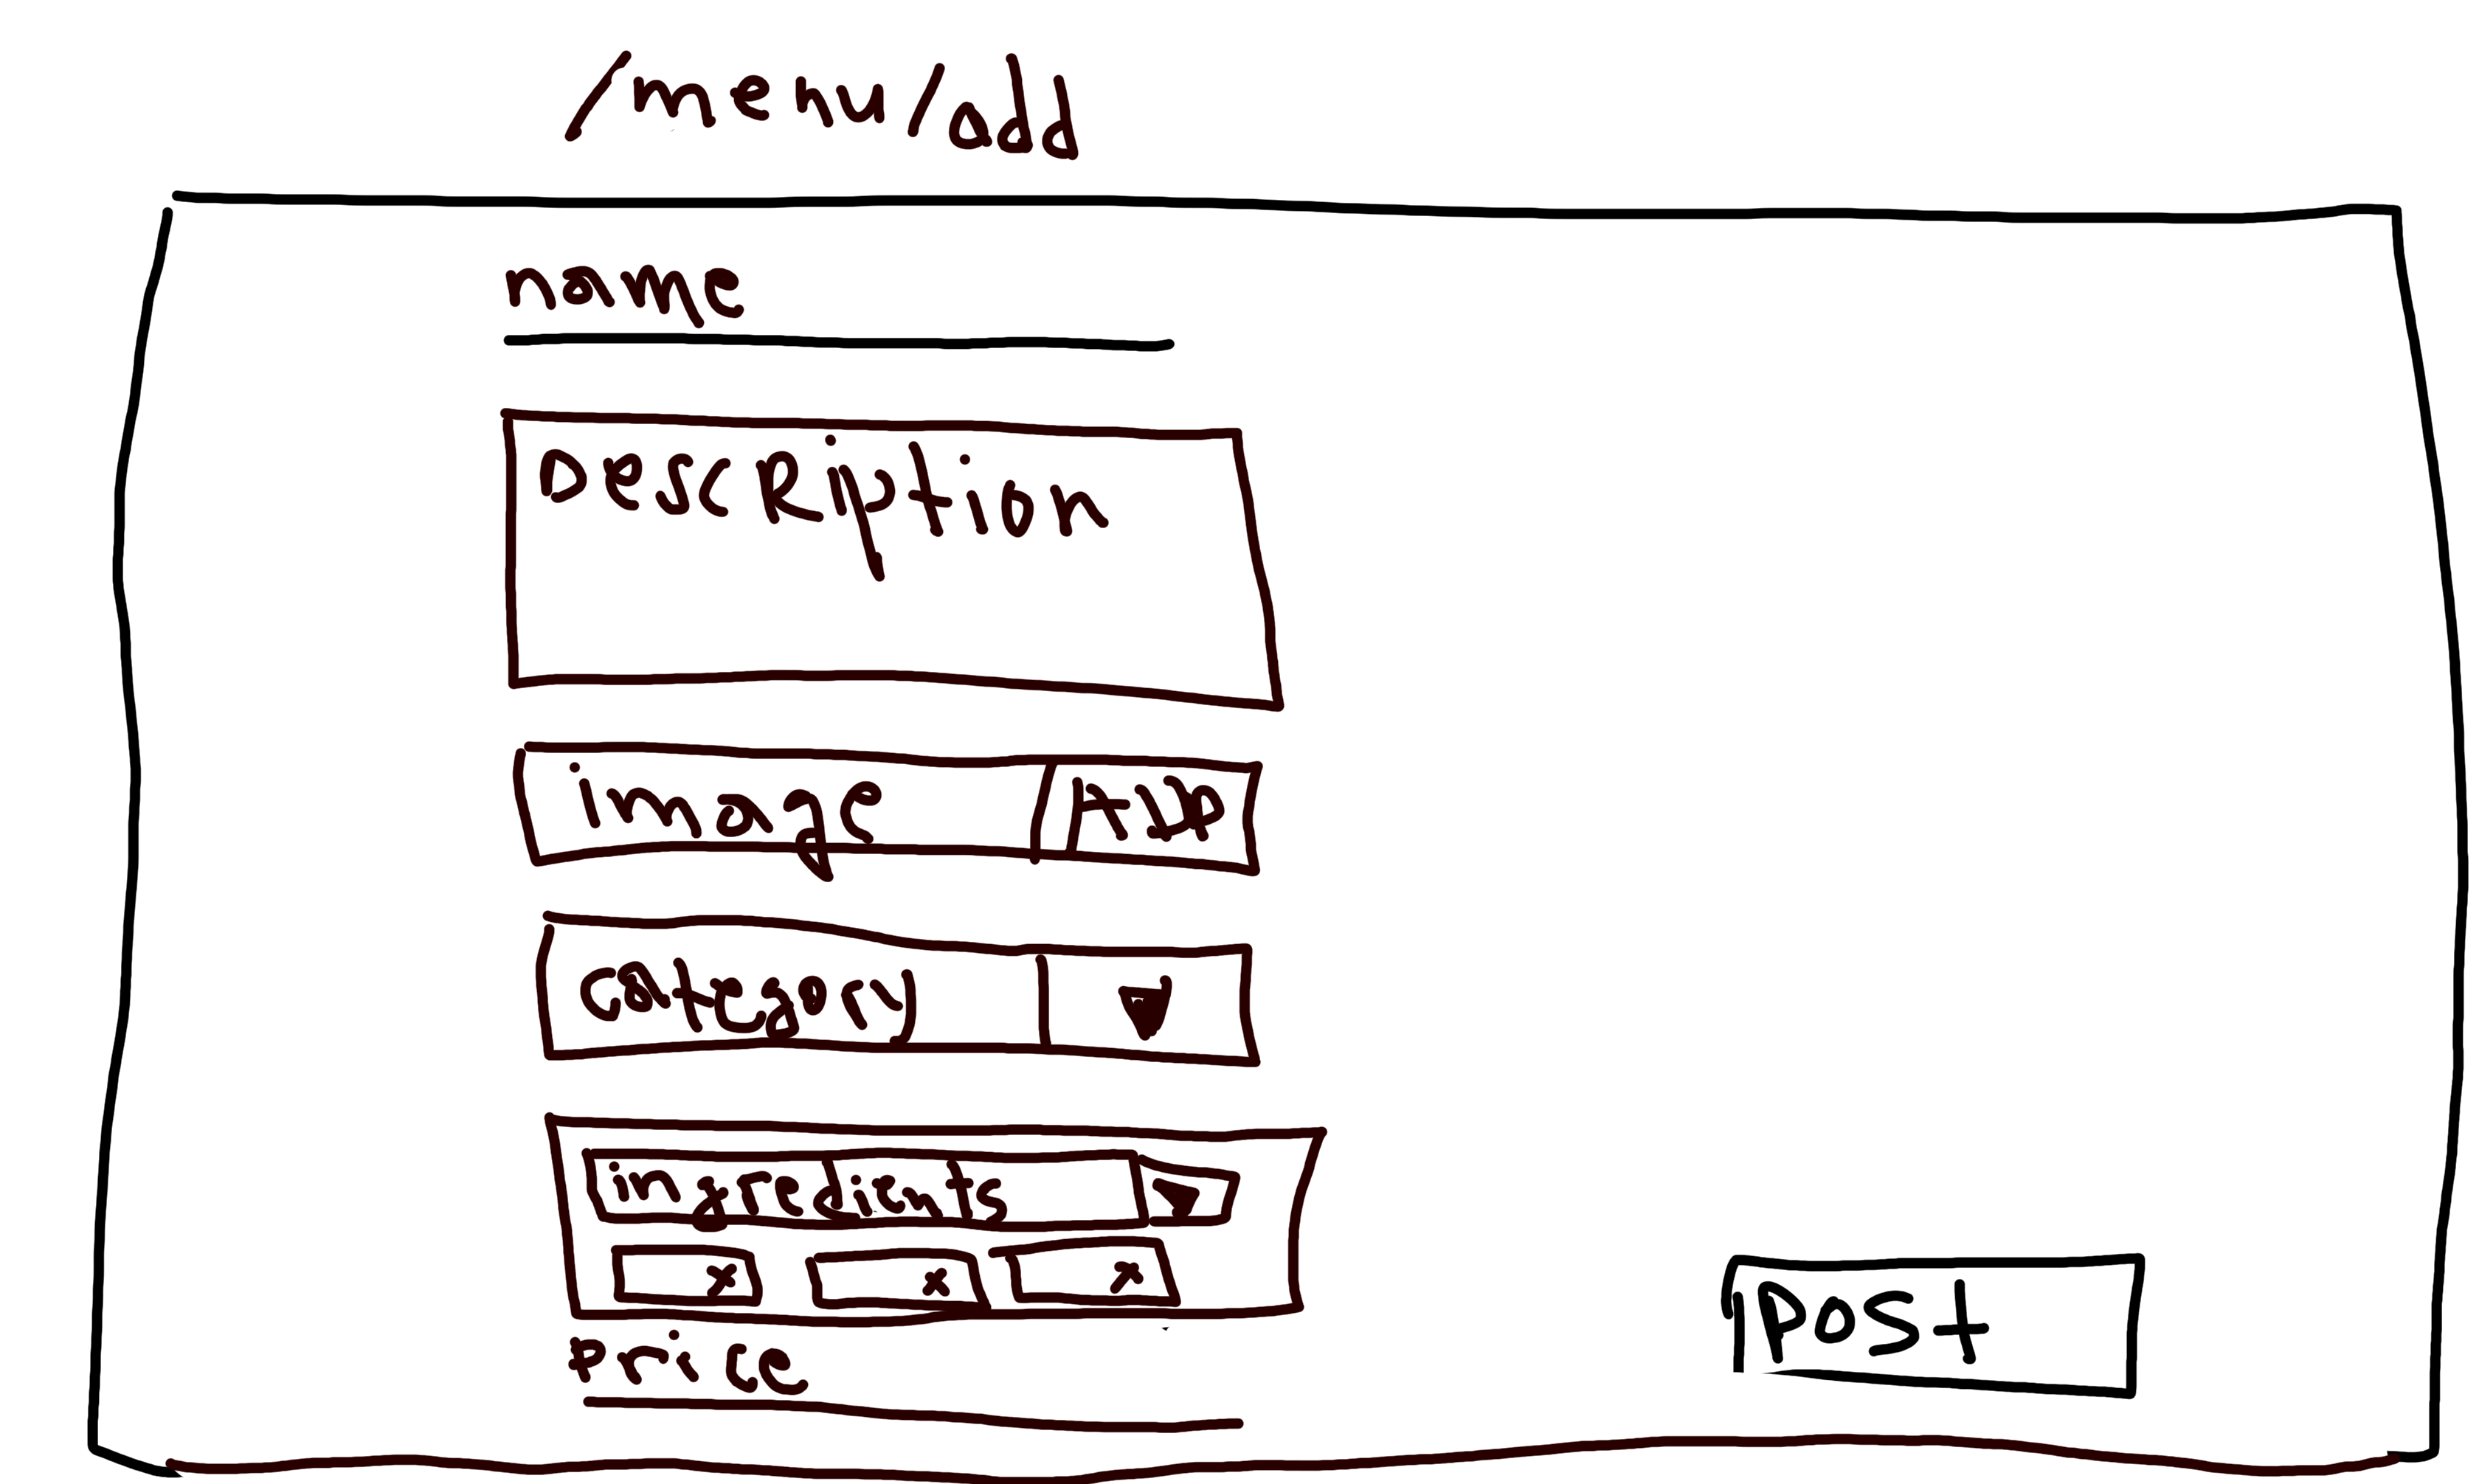 /menu/add
name
Description
image
category
ingredients
x x x
price
Post